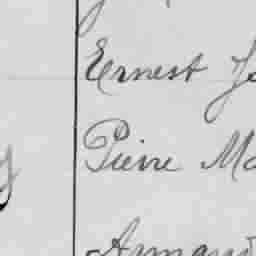 Ernest
Pierre
Armand